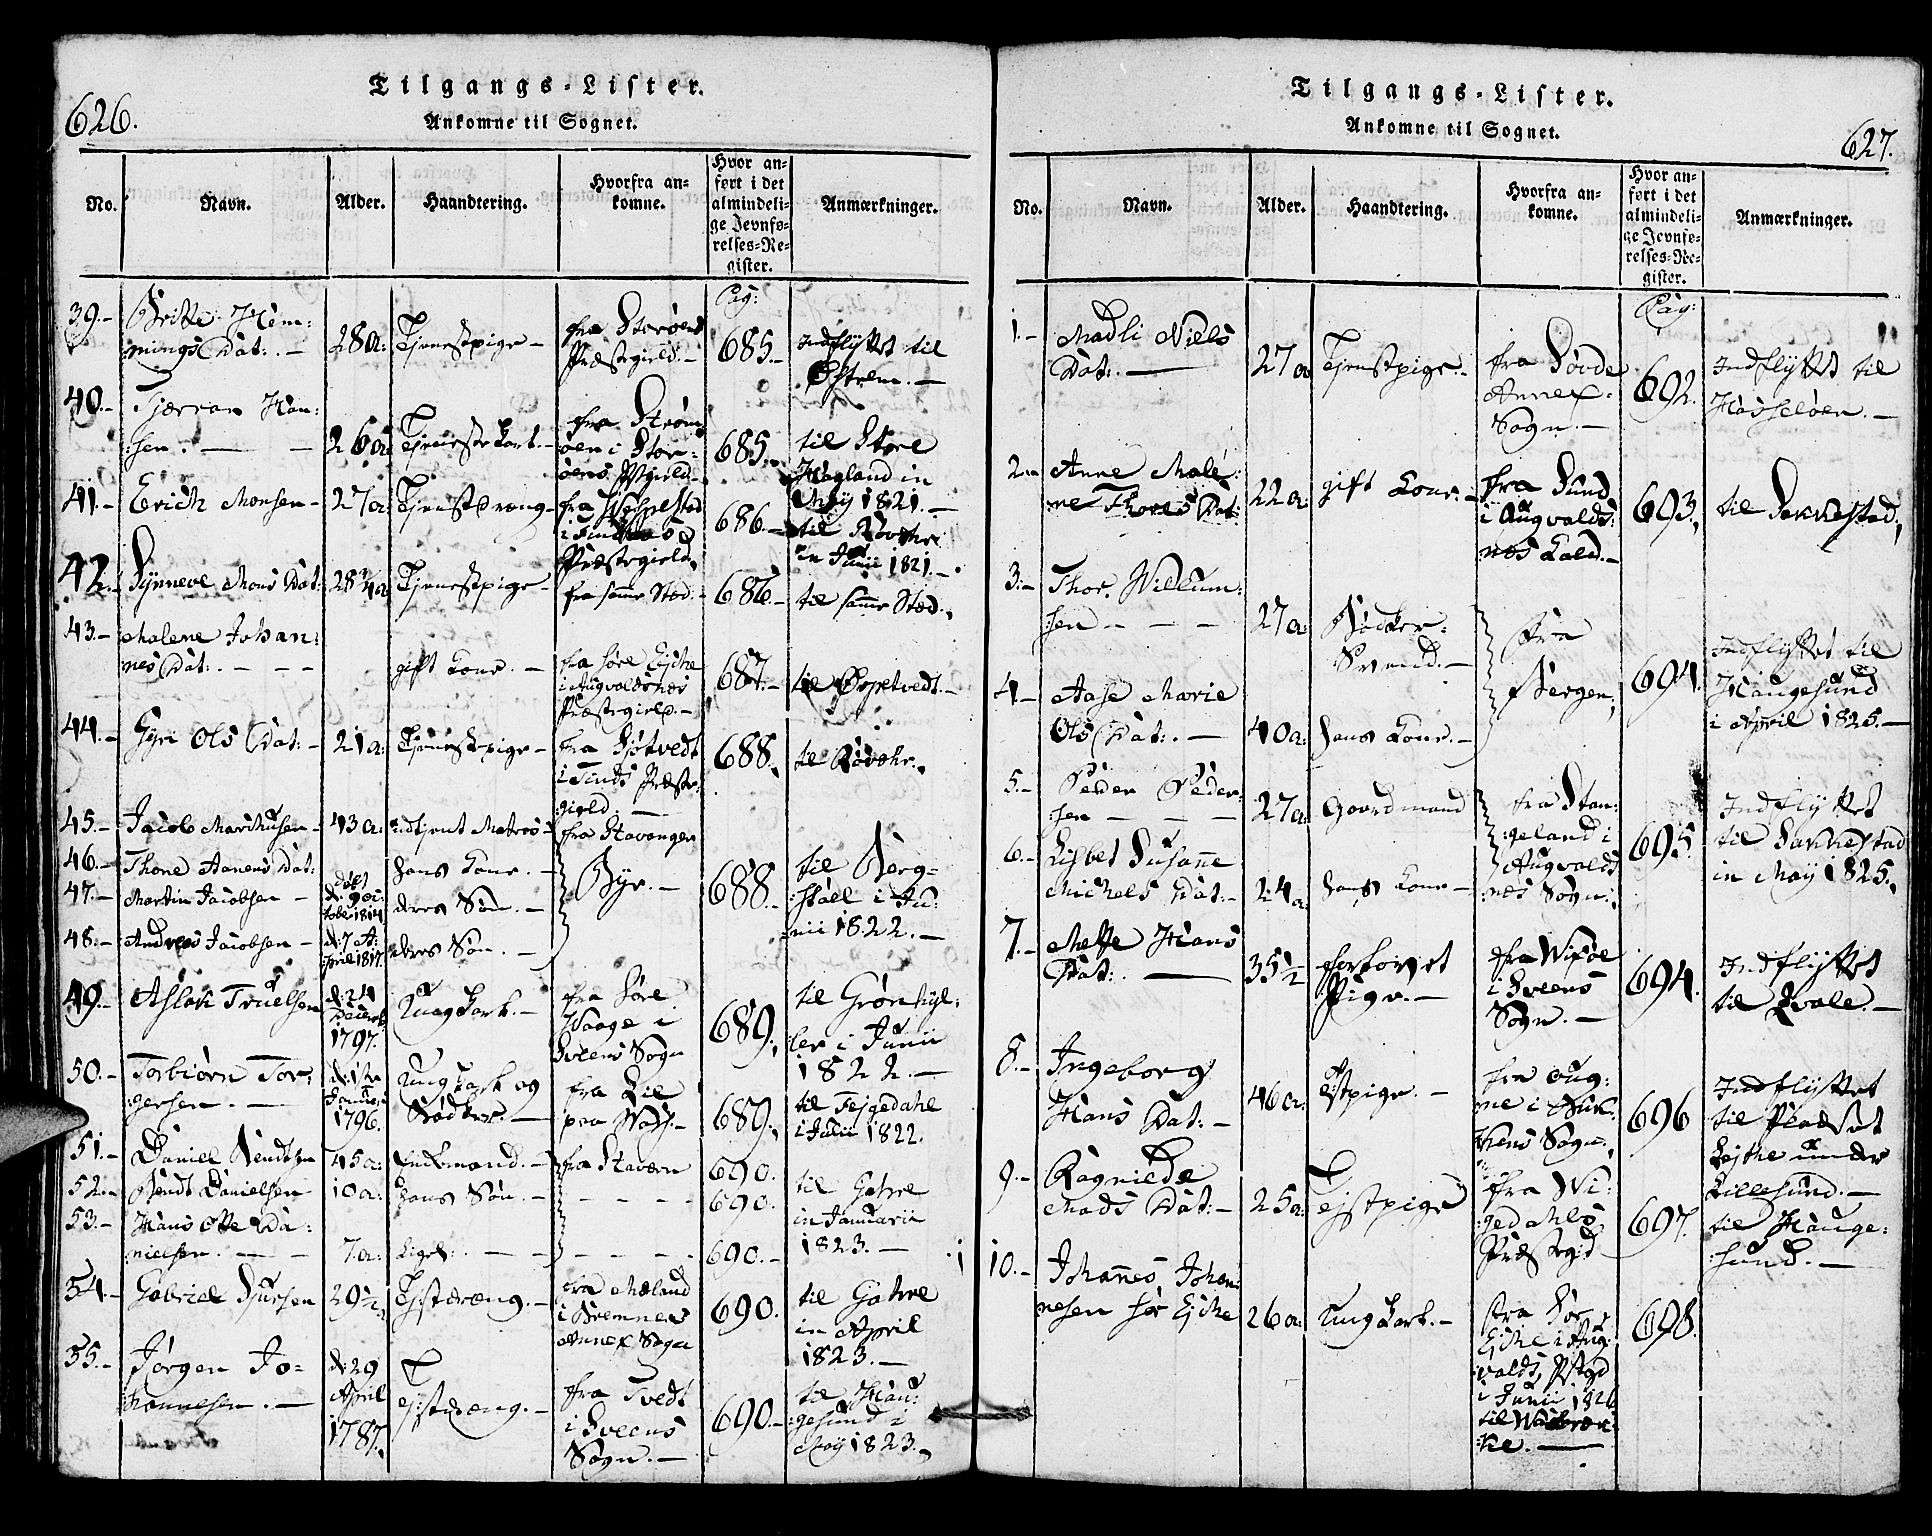 626.
Tilgangs-Lister.
Ankomne til Sognet.
No. Navn. Alder. Haandtering. Hvorfra an-komne. Hvor an-ført i det almindeli-ge Jevnfø-relses-Re-gister. Anmærkninger.
Pag:
39.- Britte Hem:
mings Dat: .- 28 a: Tjenestpige- fra Storöens
Præstegield.- 685.- Indflyttet til
Östrem.-
40.- Tjærran Han:
:sen.- 26 a: Tjenestekarl.- fra Strøm
öen i Stor-
öens Pgield.- 685.- til Store
Hagland in
Maij 1821.-
41.- Erich Monsen- 27 a: Tjenestdreng- fra
i Finds
Præstegield. 686.- til Røvehr
in Junii 1821.-
42.- Synneve Mons Dat: 28 3/4 a Tjenestpige- fra samme Sted.- 686.- til samme Sted.
43.- Malene Johan:
nes Dat: .- gift Kone.- fra søre Ejche
i Augvaldsnæs
Præstegield.- 687.- til
44.- Gyri Ols Dat:- 21 a: Tjenestpige- fra
i Finds Præste:
gield.- 688. til Røvehr.
45.- Jacob Marchusen- 43 a: udtjent Matros- fra Stavanger
46.- Thone Aanens Dat: hans Kone.-
47.- Martin Jacobsen- d: 9 Oc:
tober 1814 deres Søn.-
48.- Andreas Jacobsen- d: 7 A:
pril 1817. deres Søn.-
Bye.- 688.- til Berg-
:stöll i Ju:
nii 1822.-
49.- Aslak Truelsen d: 24
Decemb
1797. Ungkarl.- fra søre
Vaage i
Sveens Sogn 689. til Grønhyl:
ler i Junii
1822.-
50.- Torbiørn Tor:
gersen.- d: 1te
Januar
1796. Ungkarl og
Bødker.- fra Lie
paa 689. til Fejgedahl
i Julii 1822.
51.- Daniel Bendtsen 45 a: Enkemand.- fra Stavern 690.
52.- Bendt Danielsen 10 a: hans Søn.- - - - 690. til Gahre
in Januarii
1823.-
53.- Hans Otte Da:
nielsen.- 7 a: Liges:- - - - 690.-
54.- Gabriel Siursen 29 1/2 Tjstdreng.- fra Mæland
i Bremnes
Annex Sogn 690. til Gahre
in April
1823.-
55.- Jørgen Jo-
hannesen.- d: 29
April
1787. Tjstdreng.- fra Tvedt
i Sveens
Sogn.- 690.- til Hau:
gesund i
Maij 1823.
627.
Tilgangs-Lister.
Ankomne til Sognet.
No. Navn. Alder. Haandtering. Hvorfra an-komne. Hvor an-ført i det almindeli-ge Jevnfø-relses-Re-gister. Anmærkninger.
Pag:
1.- Madli Niels
Dat: .- 27 a Tjenstpige.- fra Søvde
Annex-
Sogn.- 692. Indflyttet til
Hasseløen.-
2.- Anne Male:
ne Thores Dat: 22 a: gift Kone.- fra Sund
i Augvalds:
næs Kald.- 693. til Sakkestad.
3.- Thor. Willum:
sen - - - 27 a: Bødker-
Svend.- fra
Bergen, 694. Indflyttet til
Haugesund
i April 1825.-
4.- Aase Marie
Ols Dat: .- 40 a: hans Kone.-
5.- Peder Peder:
sen - - - 27 a: Gaardmand fra Stan:
:geland i
Augvalds
næs Sogn. 695. Indflyttet
til Sakkestad
in Maij 1825.
6.- Lisbet Susanne
Michels Dat:- 24 a: hans Kone-
7.- Mette Hans
Dat: .- 35 1/2 forlovet
Pige.- fra
i Sveens
Sogn.- 694. Indflyttet
til Qvale.-
8.- Ingeborg
Hans Dat:- 46 a: Tjstpige.- fra Oug:
ne i
Sogn. 696 Indflyttet
til Pladset
Lejthe under
Lillesund.-
9.- Ragnilde
Mads Dat:- 25 a: Tejstpige fra Vi:
gedahls
Præstegd 697. til Hauge:
:sund.-
10.- Johannes Johan:
nesen sør Ejche 26 a: Ungkarl.- fra Sør
Ejche i Aug
valds, Pstgd
i Junii 1826
til 698.